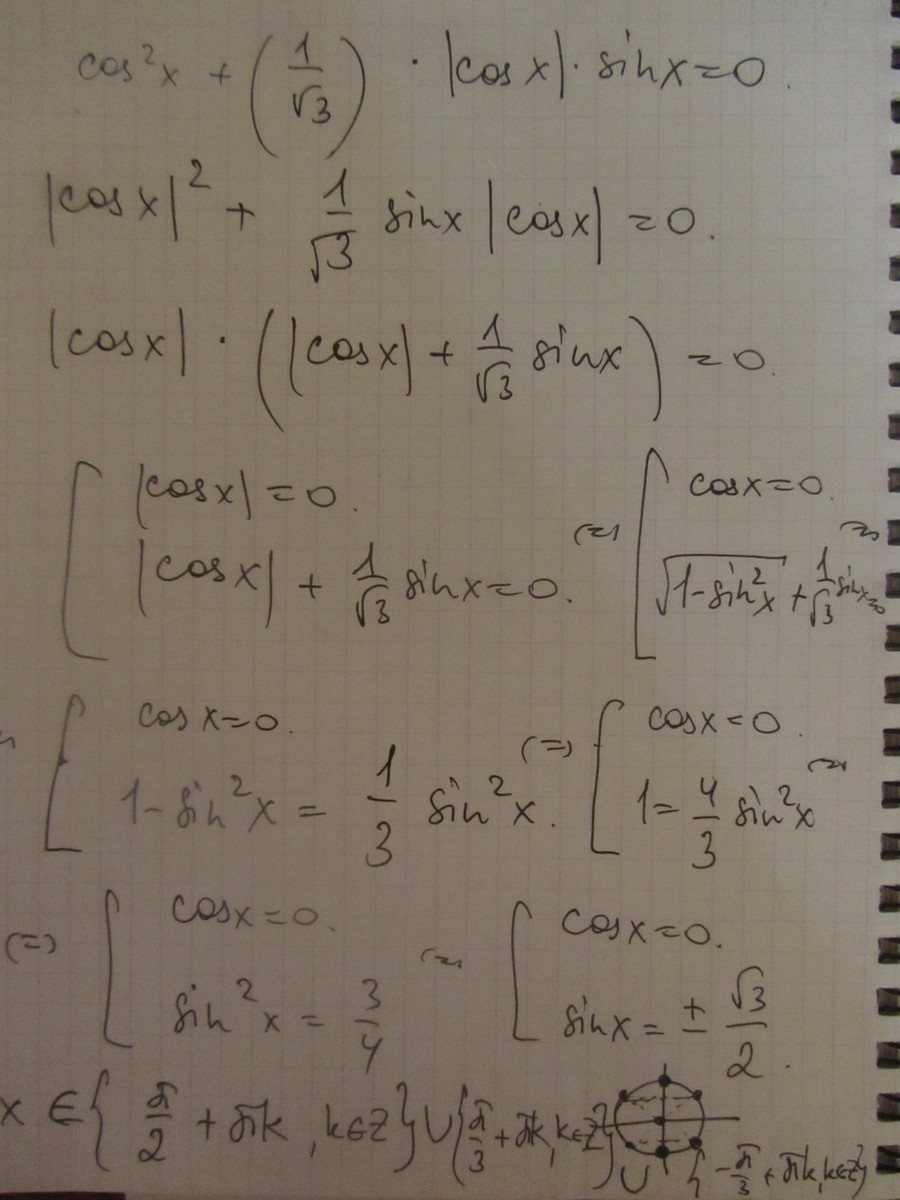 cos²x + (1/√3) · |cos x| · sin x = 0.
|cos x|² + 1/√3 sin x |cos x| = 0.
|cos x| · (|cos x| + 1/√3 sin x) = 0.
[ |cos x| = 0. ; |cos x| + 1/√3 sin x = 0. (=) [ cos x = 0. ; √(1-sin²x) + 1/√3 sin x = 0 (=)
[ cos x = 0. ; 1 - sin²x = 1/3 sin²x. (=) [ cos x = 0. ; 1 = 4/3 sin²x (=)
(=) [ cos x = 0. ; sin²x = 3/4 (=) [ cos x = 0. ; sin x = ± √3/2.
x ∈ {π/2 + πk, k∈Z} ∪ {π/3 + πk, k∈Z} ∪ {-π/3 + πk, k∈Z}